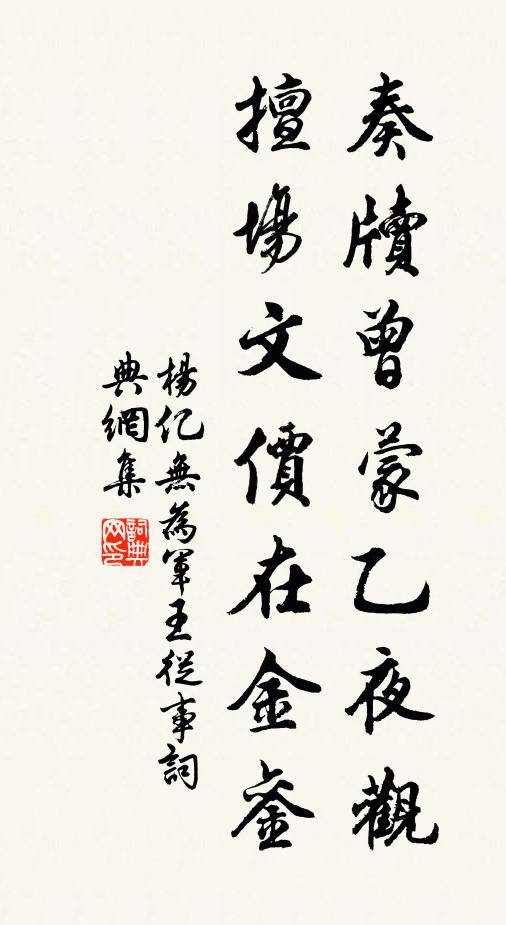 奏牘曾蒙乙夜觀
擅場文價在金銮
楊亿無為軍王從事詞
典網集
詞典
网印